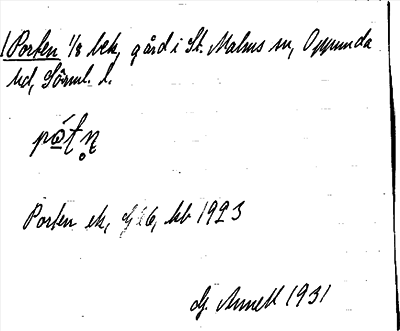 Porten 1/8 bek, gård i St. Malms sn, Oppunda
hd, Sörml. l.
Porten ek, GEK, kb 1923
Gj. Annell 1931